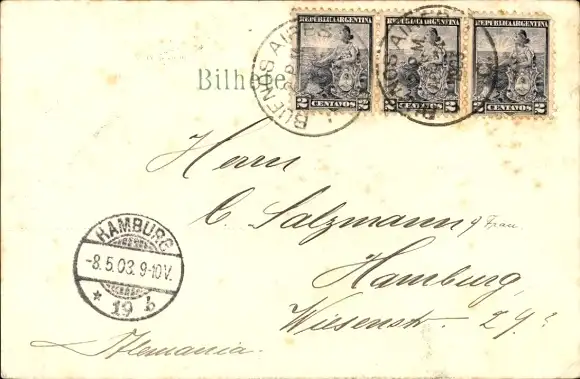 REPUBLICA ARGENTINA REPUBLICA ARGENTINA REPUBLICA ARGENTINA
2 CENTAVOS 2 2 CENTAVOS 2 2 CENTAVOS 2
BUENOS AIRES
BUENOS AIRES
Bilhete
Herrn
C. Salzmann & Frau
Hamburg,
Wiesenstr. 29
HAMBURG
-8.5.03.9-10V.
* 19 b
Alemania.